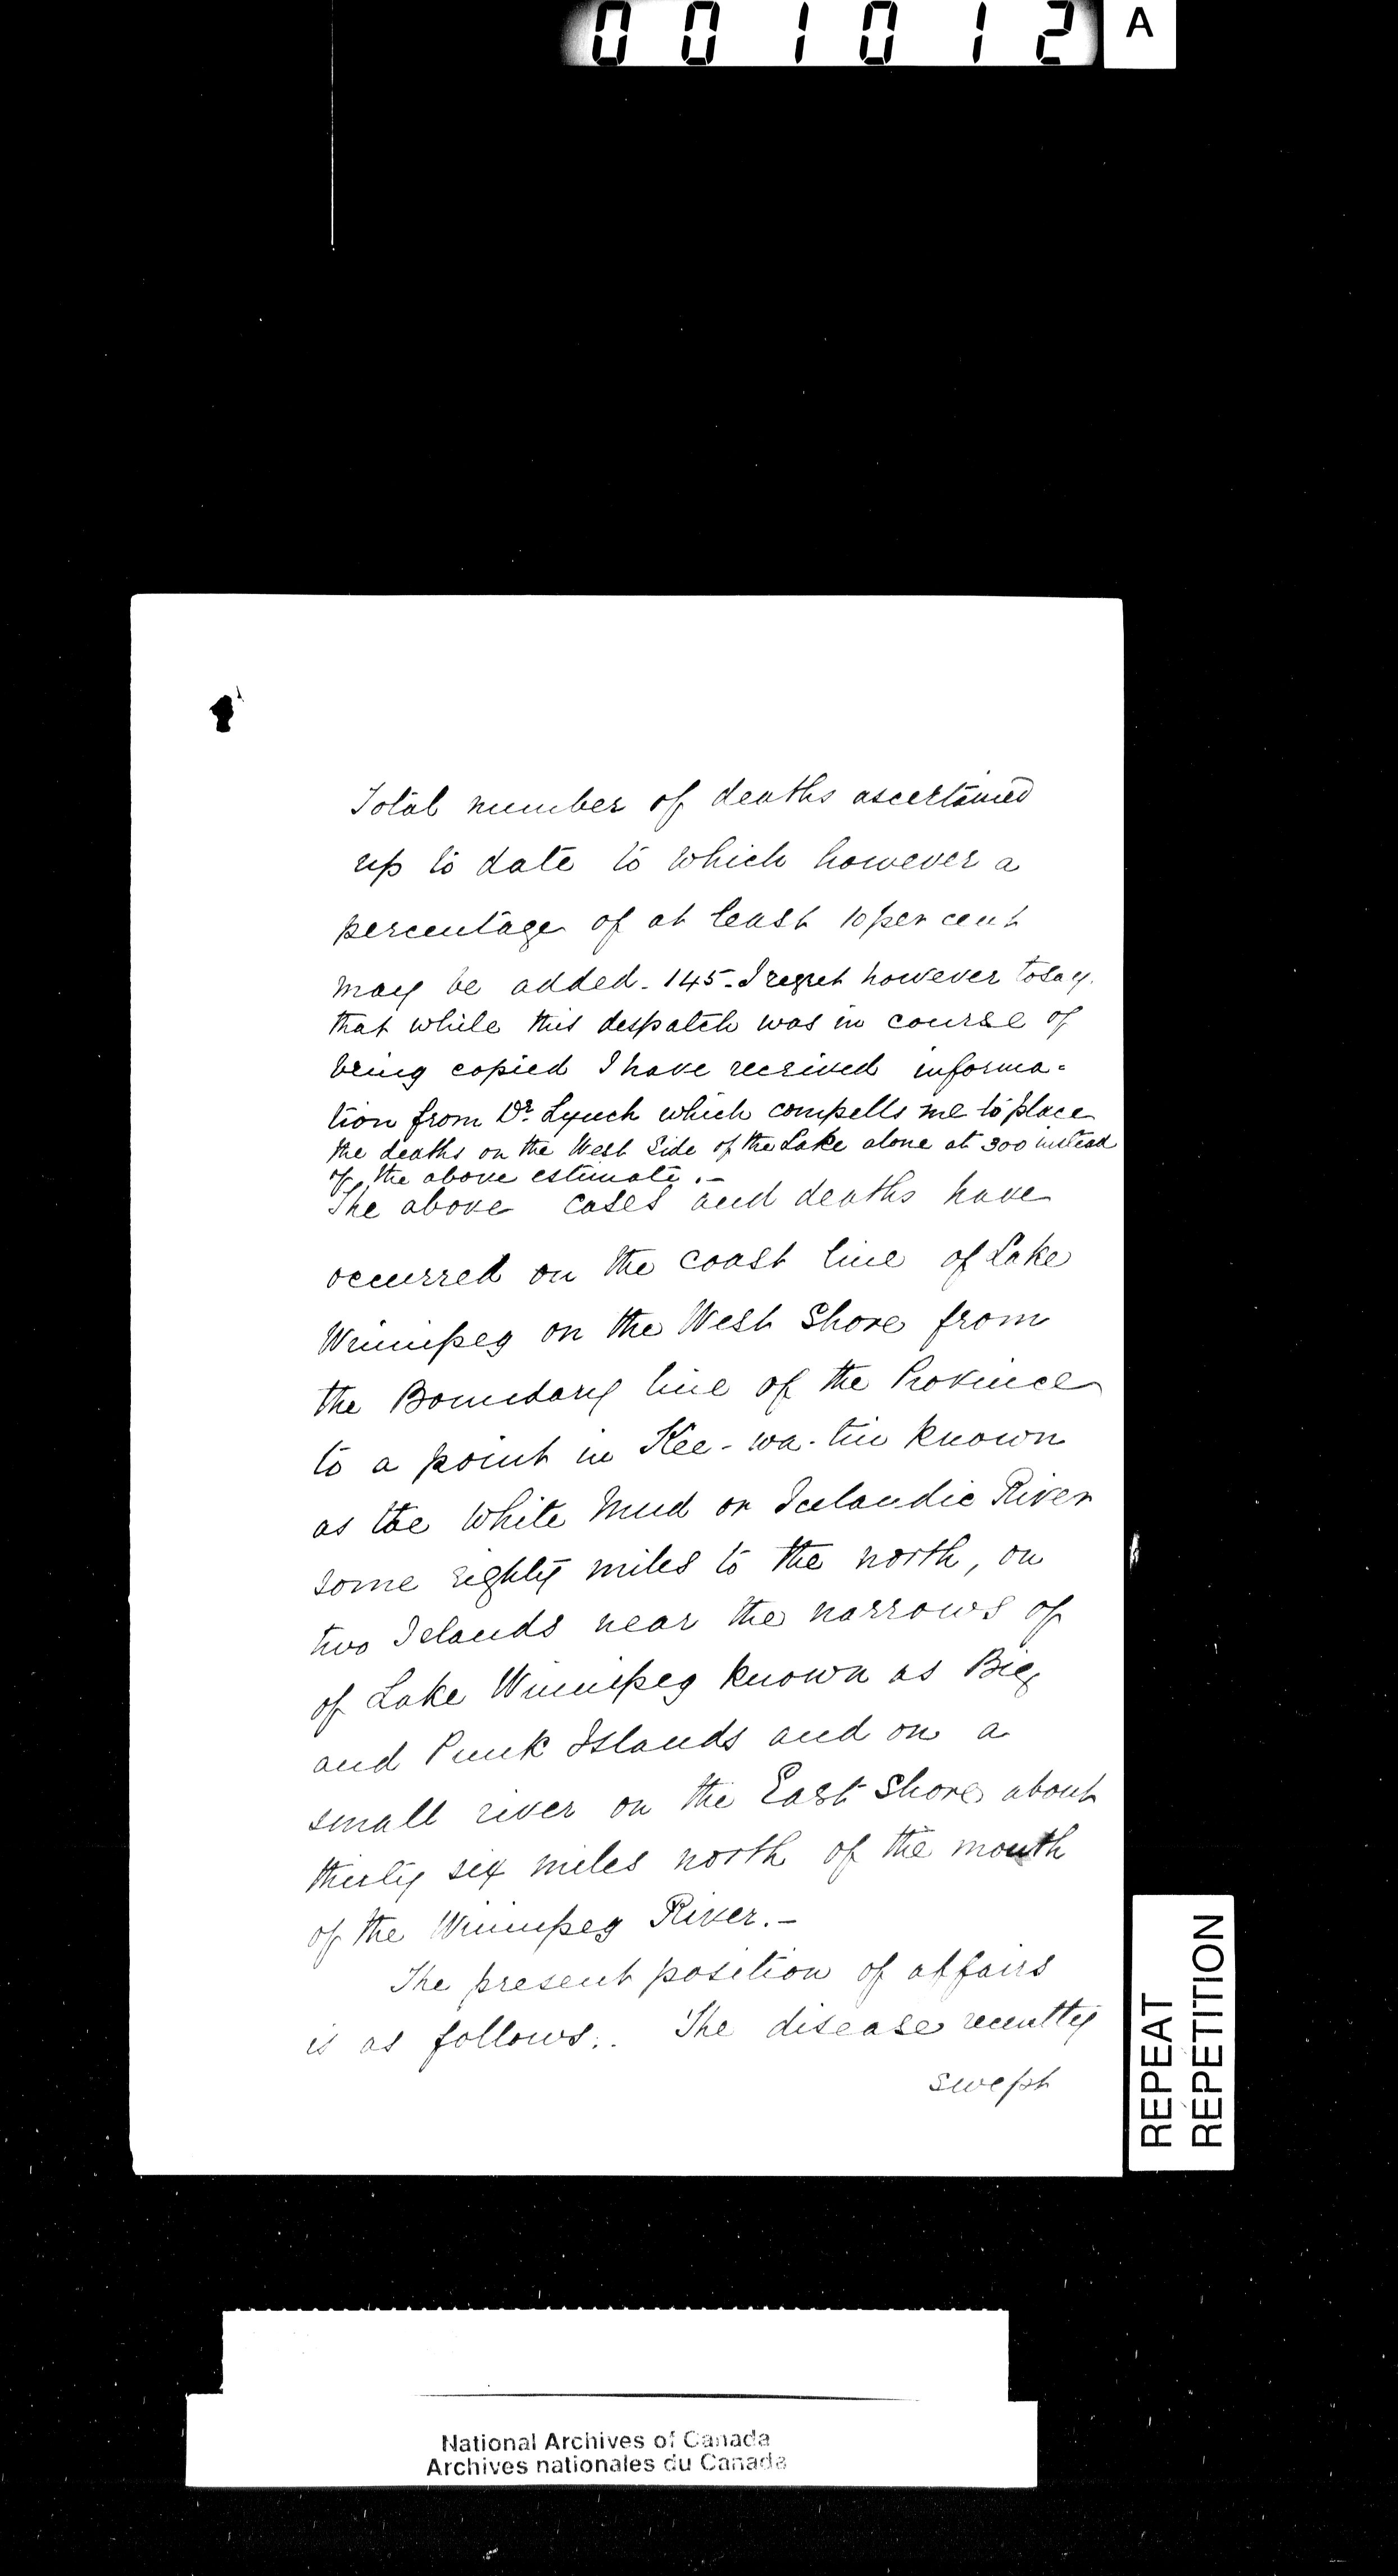 001012 A
Total number of deaths ascertained
up to date to which however a
percentage of at least 10 per cent
may be added - 145 - I regret however to say
that while this despatch was in course of
being copied I have received informa-
tion from Dr. Lynch which compells me to place
the deaths on the West Side of the Lake alone at 300 instead
of the above estimate. -
The above cases and deaths have
occurred on the coast line of Lake
Winnipeg on the West Shore from
the Boundary line of the Province
to a point in Kee-wa-tin known
as the White Mud or Icelandic River
some eighty miles to the north, on
two Islands near the narrows of
of Lake Winnipeg known as Big
and Punk Islands and on a
small river on the East Shore about
thirty six miles north of the mouth
of the Winnipeg River. -
The present position of affairs
is as follows:. The disease recently
swept
REPEAT
REPETITION
National Archives of Canada
Archives nationales du Canada